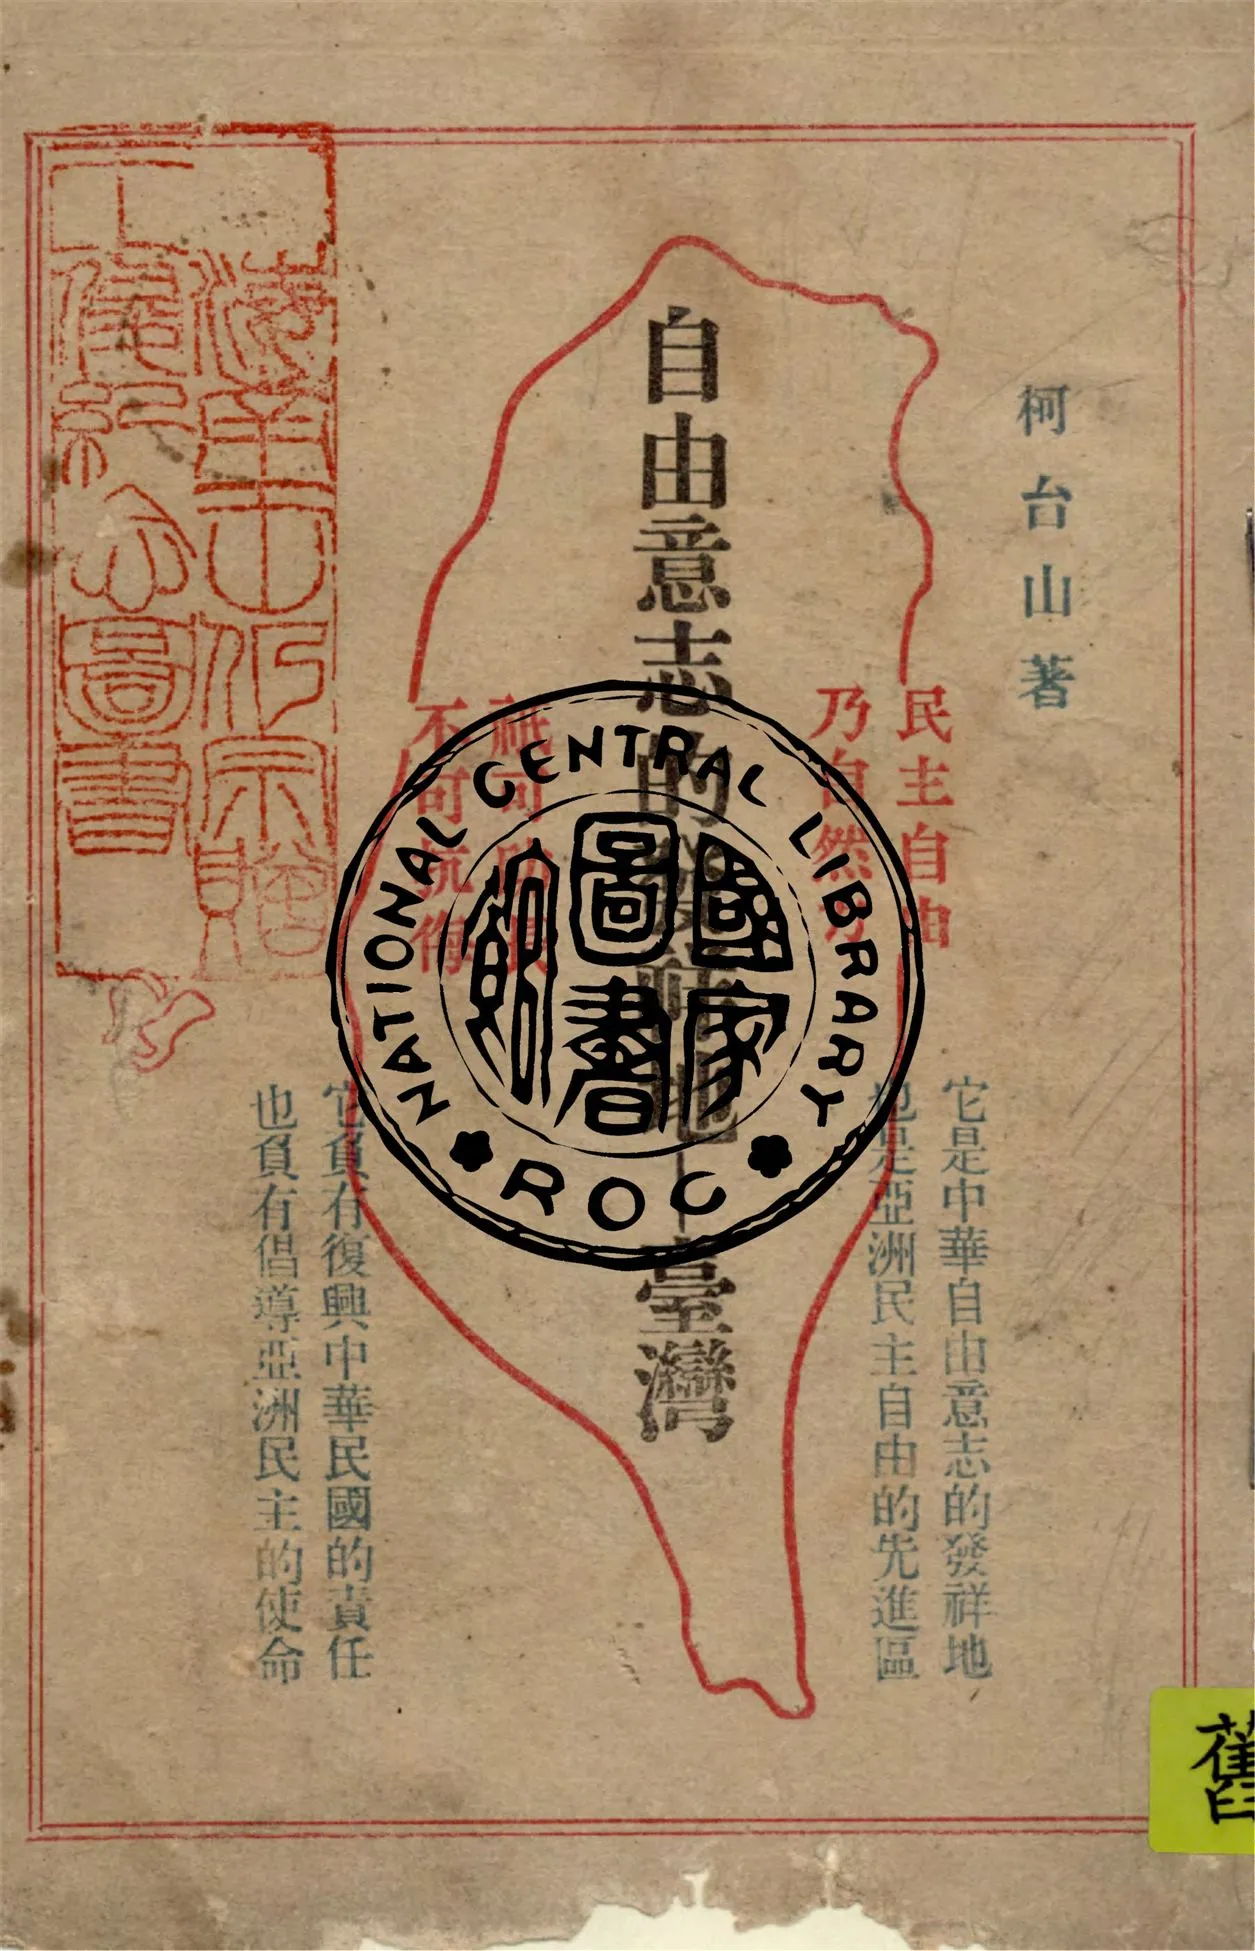 柯台山著
民主自由
乃自然
自由意志的發祥地—臺灣
祇可
不可抗侮
它是中華自由意志的發祥地
也是亞洲民主自由的先進區
它負有復興中華民國的責任
也負有倡導亞洲民主的使命
NATIONAL CENTRAL LIBRARY
國家圖書館
ROC
圖書
舊